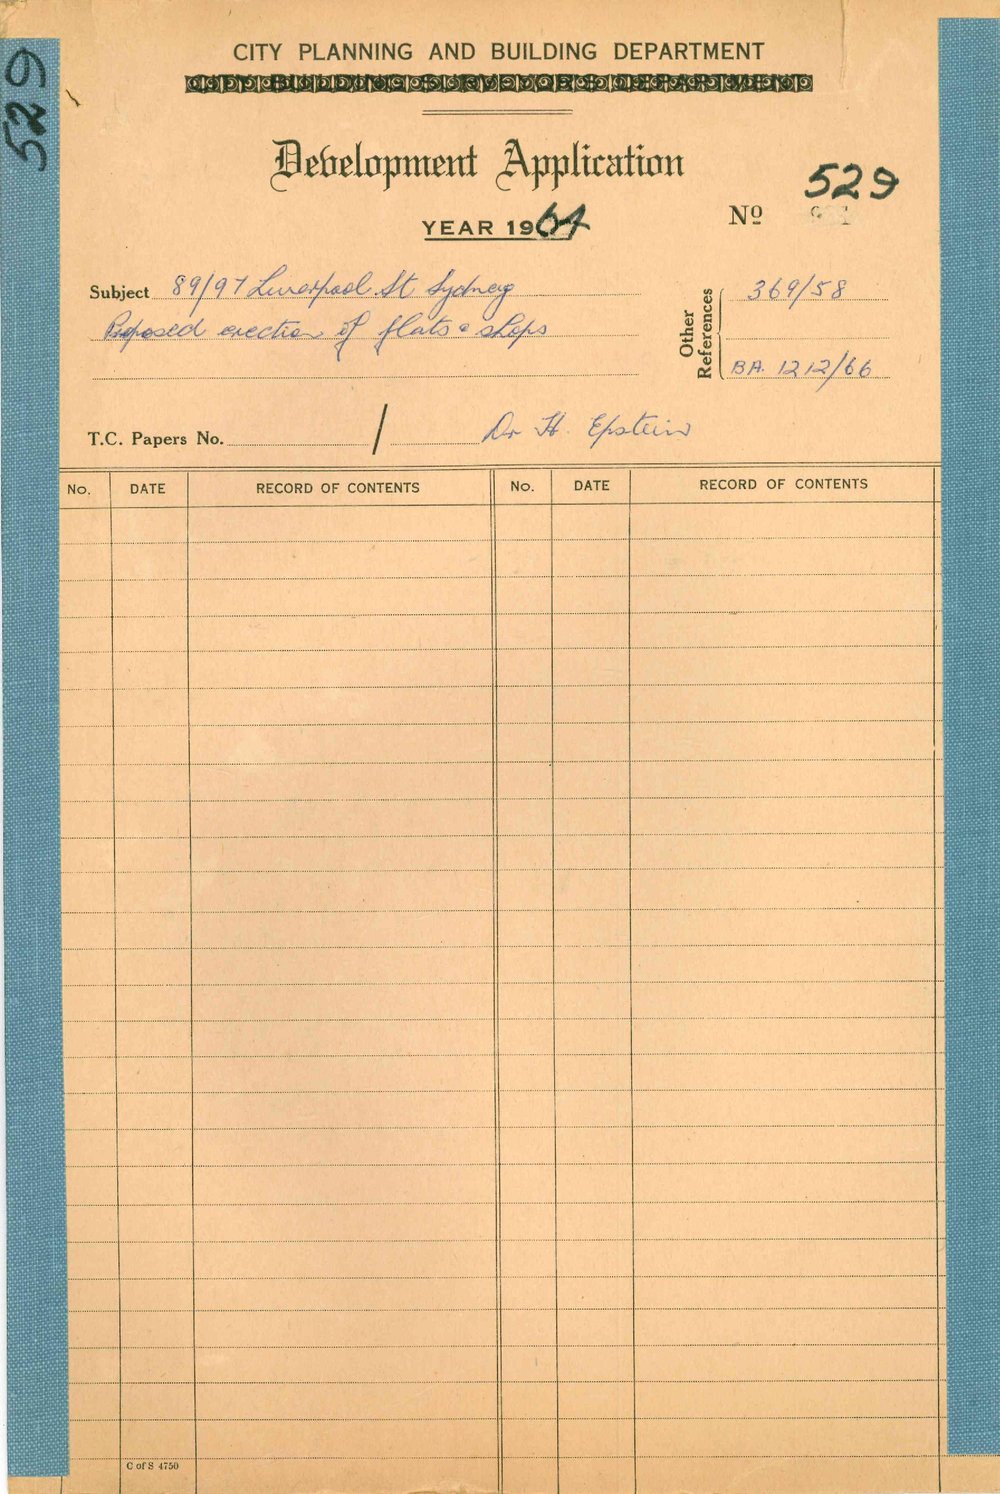 529
CITY PLANNING AND BUILDING DEPARTMENT
CITY BUILDING SURVEYOR'S DEPARTMENT
Development Application
YEAR 1964
No 529
Subject 89/97 Liverpool St Sydney
Proposed erection of flats & shops
Other References
369/58
BA. 1212/66
T.C. Papers No. / Dr H. Epstein
No. DATE RECORD OF CONTENTS No. DATE RECORD OF CONTENTS
C of S 4750